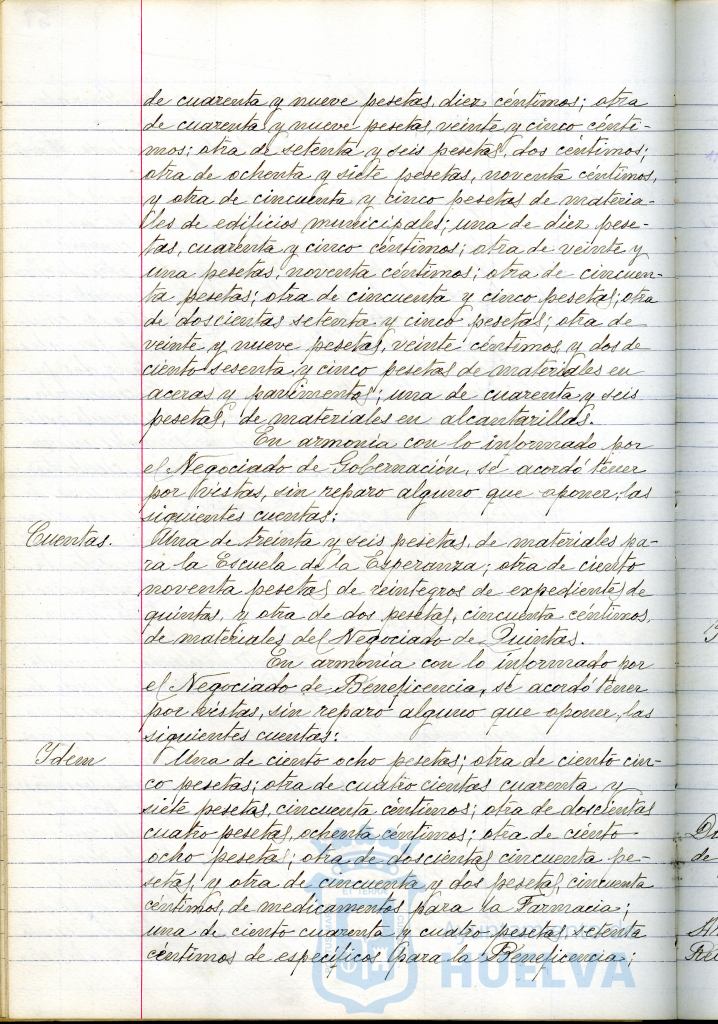 de cuarenta y nueve pesetas, diez céntimos; otra
de cuarenta y nueve pesetas, veinte y cinco cénti-
mos; otra de setenta y seis pesetas, dos céntimos;
otra de ochenta y siete pesetas, noventa céntimos,
y otra de cincuenta y cinco pesetas de materia-
les de edificios municipales; una de diez pese-
tas, cuarenta y cinco céntimos; otra de veinte y
una pesetas, noventa céntimos; otra de cincuen-
ta pesetas; otra de cincuenta y cinco pesetas; otra
de doscientas setenta y cinco pesetas; otra de
veinte y nueve pesetas, veinte céntimos, y dos de
ciento sesenta y cinco pesetas de materiales en
aceras y pavimentos; una de cuarenta y seis
pesetas, de materiales en alcantarillas.
En armonía con lo informado por
el Negociado de Gobernación, se acordó tener
por vistas, sin reparo alguno que oponer, las
siguientes cuentas:
Cuentas. Una de treinta y seis pesetas, de materiales pa-
ra la Escuela de la Esperanza; otra de ciento
noventa pesetas de reintegros de expedientes de
quintas, y otra de dos pesetas, cincuenta céntimos,
de materiales del Negociado de Quintas.
En armonía con lo informado por
el Negociado de Beneficencia, se acordó tener
por vistas, sin reparo alguno que oponer, las
siguientes cuentas:
Idem Una de ciento ocho pesetas; otra de ciento cin-
co pesetas; otra de cuatrocientas cuarenta y
siete pesetas, cincuenta céntimos; otra de doscientas
cuatro pesetas, ochenta céntimos; otra de ciento
ocho pesetas; otra de doscientas cincuenta pe-
setas, y otra de cincuenta y dos pesetas, cincuenta
céntimos, de medicamentos para la Farmacia;
una de ciento cuarenta y cuatro pesetas, setenta
céntimos de específicos para la Beneficencia;
HUELVA